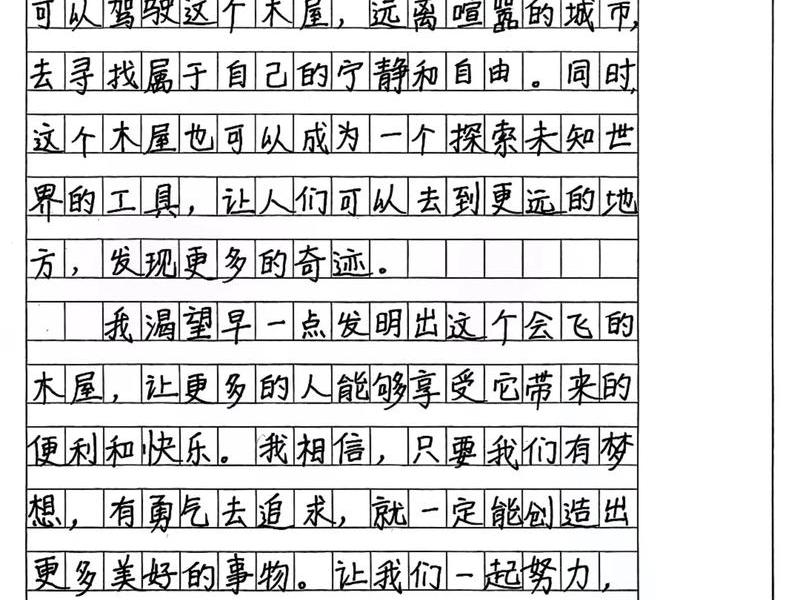 可以驾驶这个木屋，远离喧嚣的城市，
去寻找属于自己的宁静和自由。同时，
这个木屋也可以成为一个探索未知世
界的工具，让人们可以去到更远的地
方，发现更多的奇迹。
我渴望早一点发明出这个会飞的
木屋，让更多的人能够享受它带来的
便利和快乐。我相信，只要我们有梦
想，有勇气去追求，就一定能创造出
更多美好的事物。让我们一起努力，